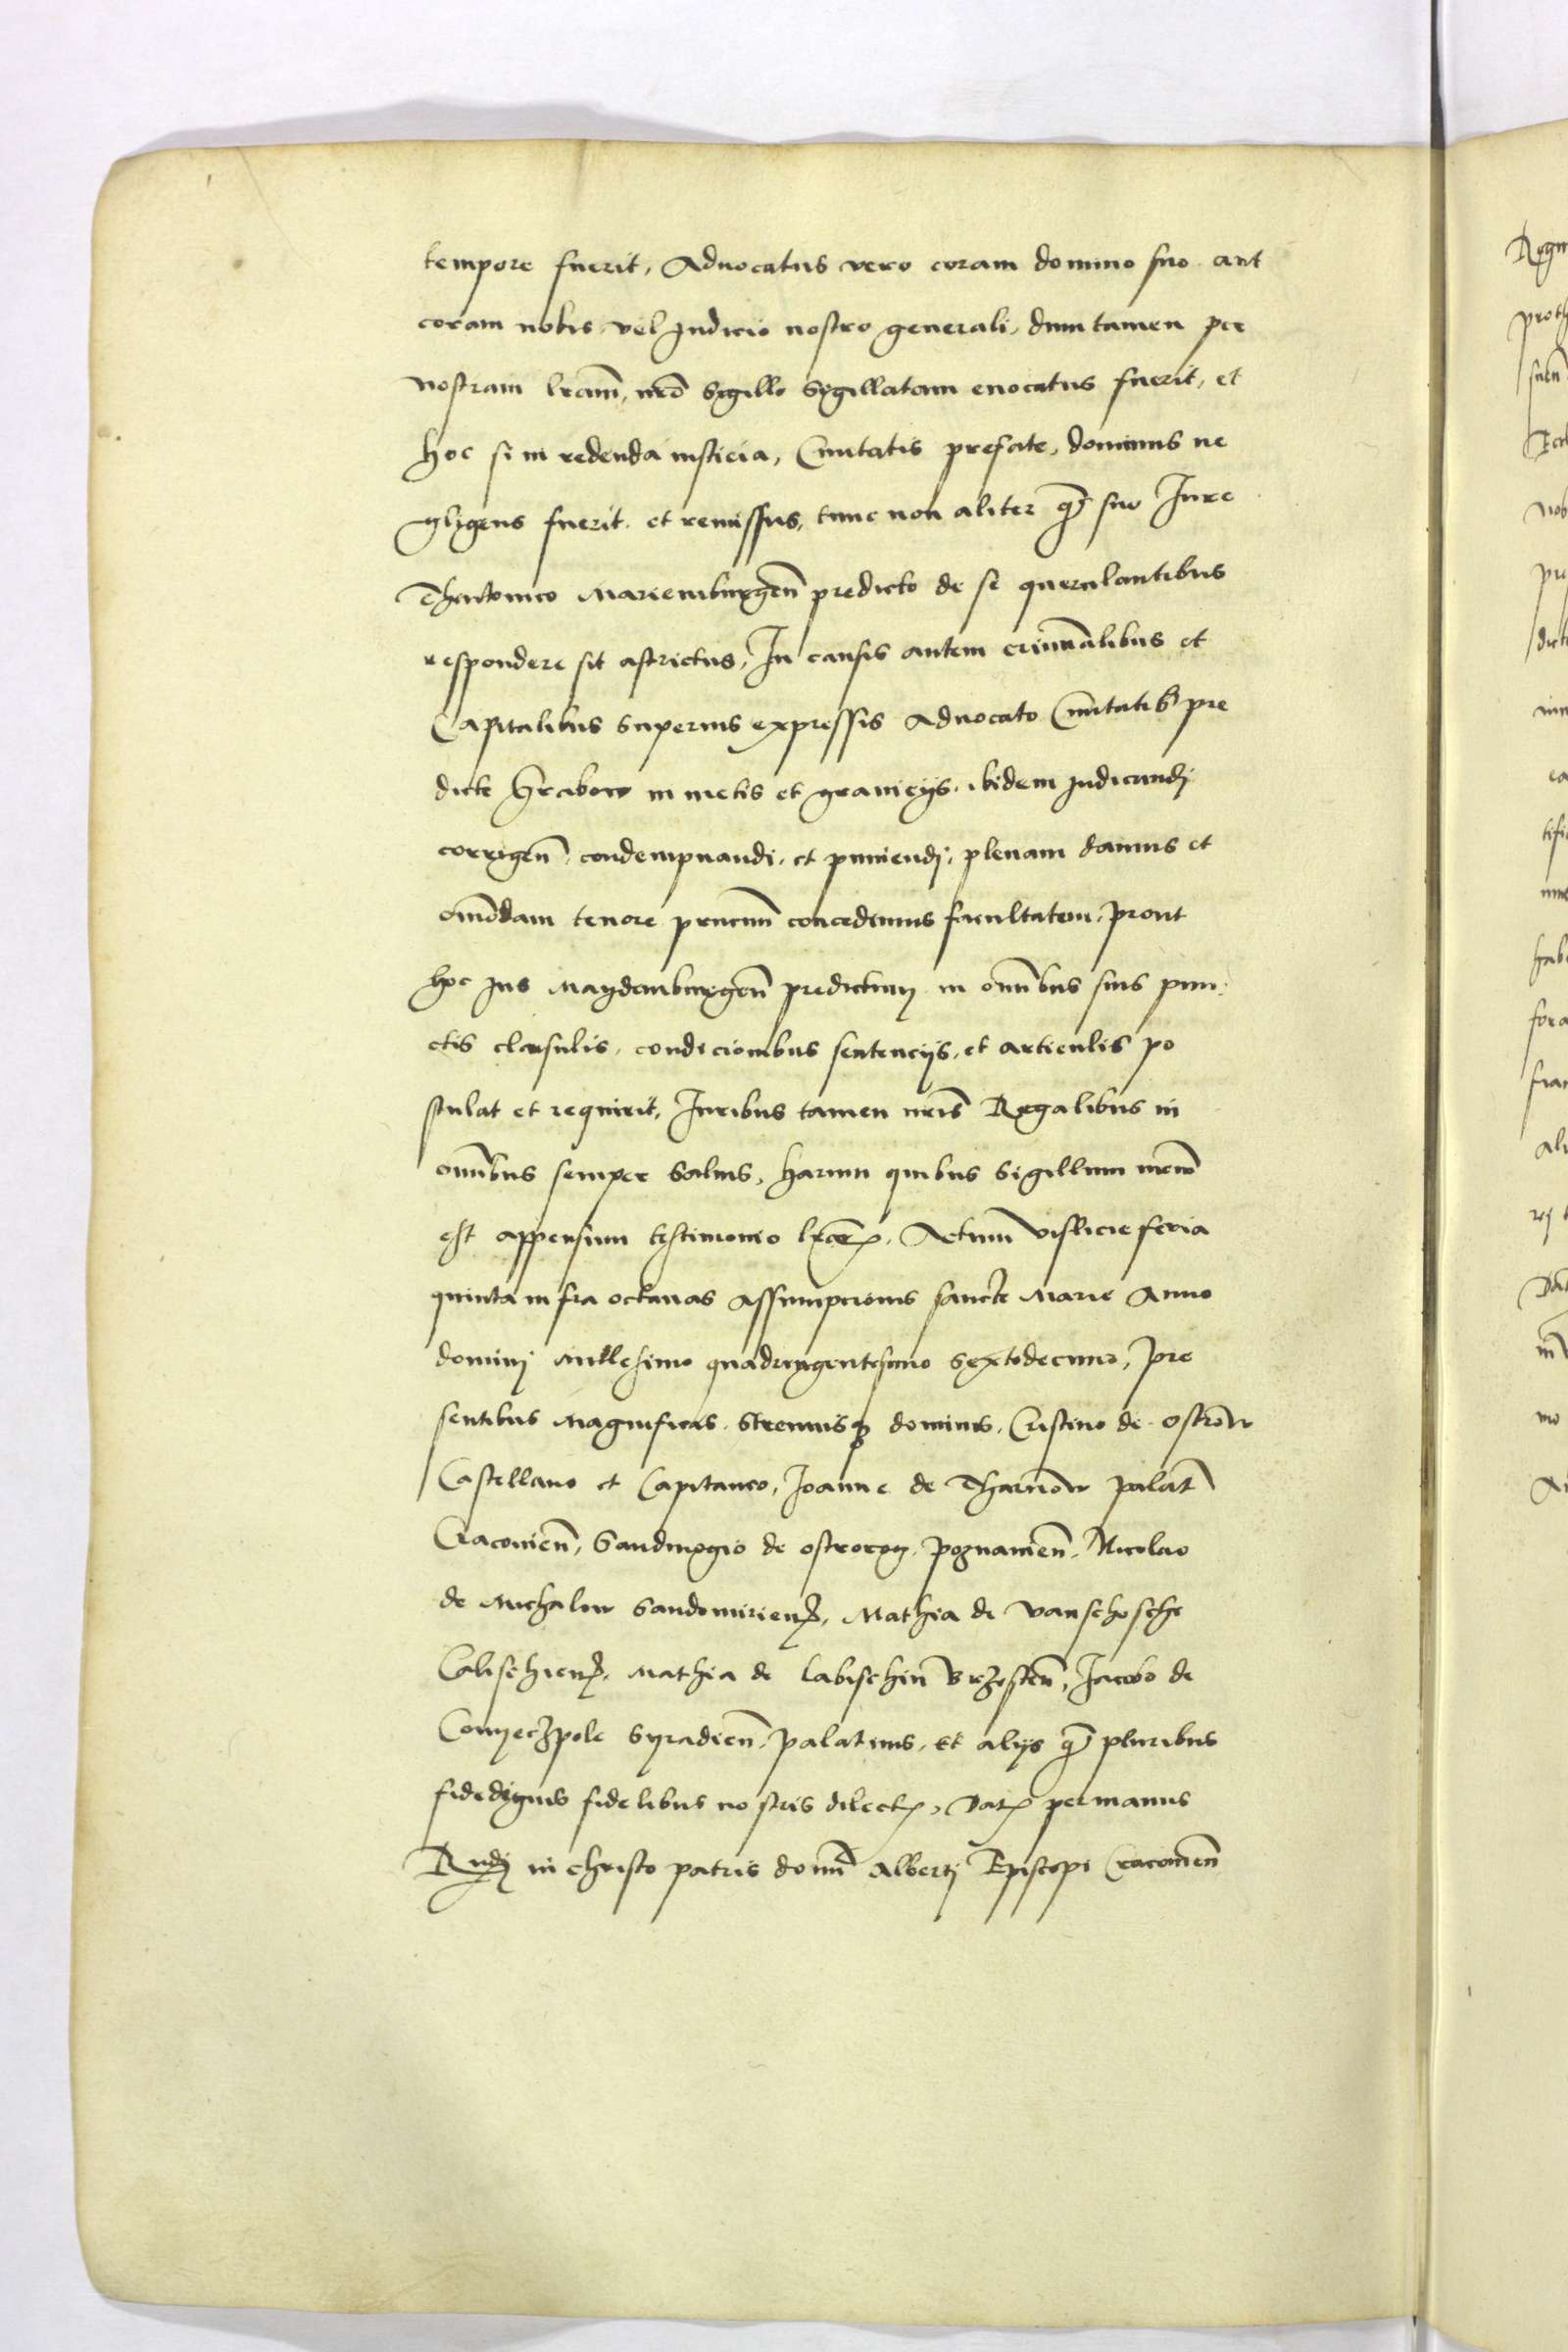 tempore fuerit, Aduocatus vero coram domino suo aut
coram nobis vel Judicio nostro generali, dum tamen per
nostram lram̄, nrō Sigillo Sigillatam euocatus fuerit, et
hoc si in redenda iusticia, Ciuitatis prefate, dominus ne
gligens fuerit et remissus, tunc non aliter q̄ suo Jure
Thewtonico Mariemburgeñ predicto de se querulantibus
respondere sit astrictus, In causis autem crimīalibus et
Capitalibus superius expressis Aduocato Ciuitatis pre
dicte Grabow in metis et granicijs ibidem Judicandj
corrigeñ, condempnandi, et puniendj, plenam damus et
om̄odam tenore prncium̄ concedimus facultatem, prout
hoc Jus Maydemburgeñ predictum in om̄ibus suis pun
ctis clausulis, condicionibus sentencijs, et articulis po
stulat et requirit, Juribus tamen nrīs Regalibus in
om̄ibus semper Saluis, harum quibus Sigillum nrm̄
est appensum testimonio lrar̄, Actum vislicie feria
quinta infra octauas Assumpcionis sancte Marie Anno
dominj Millesimo quadringentesimo Sextodecimo, pre
sentibus Magnificis Strenuisq dominis, Cristino de Ostrow
Castellano et Capitaneo, Joanne de Tharnow palat̄
Cracouieñ, Sandiuogio de ostrorog, poznanieñ, Nicolao
de Michalow Sandomirien̄, Mathia de Vanschosche
Calischien̄, Mathia de Labischin Brzesteñ, Jacobo de
Conyeczpole Syradieñ palatinis, Et alijs q̄ pluribus
fidedignis fidelibus nostris dilect̄, Dat̄ per manus
Rndj in christo patris domī Albertj Episcopi Cracouieñ
Regn
proth
nob
pre
dict
hab
fora
fran